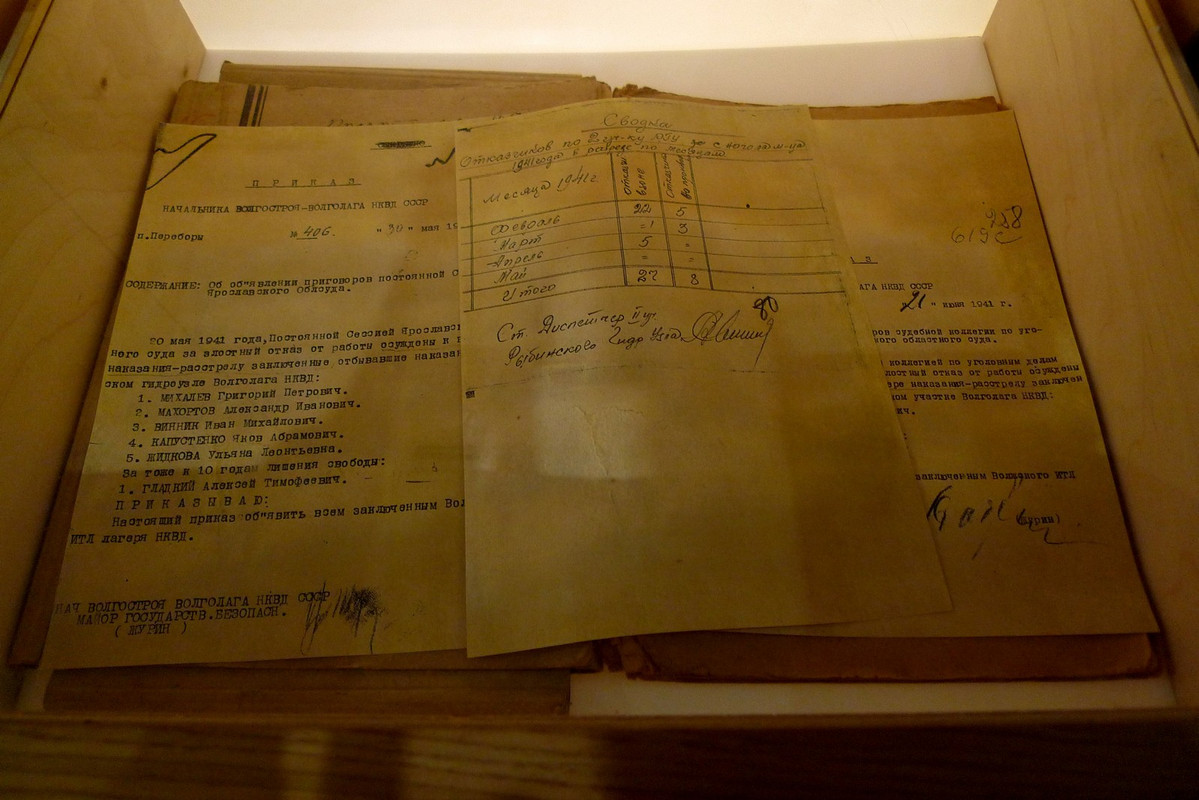 П Р И К А З
НАЧАЛЬНИКА ВОЛГОСТРОЯ-ВОЛГОЛАГА НКВД СССР
п.Переборы № 406. "30" мая 19
СОДЕРЖАНИЕ: Об об"явлении приговоров постоянной С
Ярославского Облсуда.
20 мая 1941 года,Постоянной Сессией Ярославс
ного суда за злостный отказ от работы осуждены к
наказания-расстрелу заключенные отбывавшие наказа
ском гидроузле Волголага НКВД:
1. МИХАЛЕВ Григорий Петрович.
2. МАХОРТОВ Александр Иванович.
3. ВИННИК Иван Михайлович.
4. КАПУСТЕНКО Яков Абрамович.
5. ЖИДКОВА Ульяна Леонтьевна.
За тоже к 10 годам лишения свободы:
1. ГЛАДКИЙ Алексей Тимофеевич.
П Р И К А З Ы В А Ю:
Настоящий приказ об"явить всем заключенным Вол
ИТЛ лагеря НКВД.
НАЧ ВОЛГОСТРОЯ ВОЛГОЛАГА НКВД СССР
МАЙОР ГОСУДАРСТВ.БЕЗОПАСН.
( ЖУРИН )
Сводка
Отказчиков по 2 уч-ку
1941 года в разрезе по месяцам
Месяца 1941 г.
Февраль 22 5
Март =1 3
Апрель 5 =
Май = =
Итого 27 8
Ст. Диспетчер II уч.
Рыбинского Гидроузла
80
958
619с
АГА НКВД СССР
"21" июня 1941 г.
ров судебной коллегии по уго-
ного областного суда.
коллегией по уголовным делам
лостный отказ от работы осуждены
ере наказания-расстрелу заключен
ом участке Волголага НКВД:
ич.
заключенным Волжского ИТЛ
(Журин)